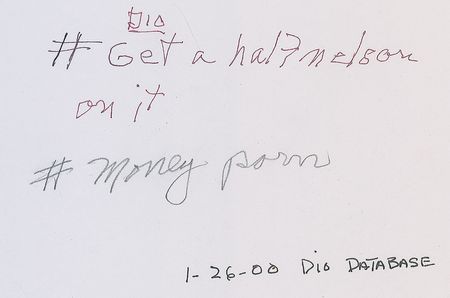 DIO
# Get a half nelson
on it
# Money porn
1-26-00 DIO DATABASE